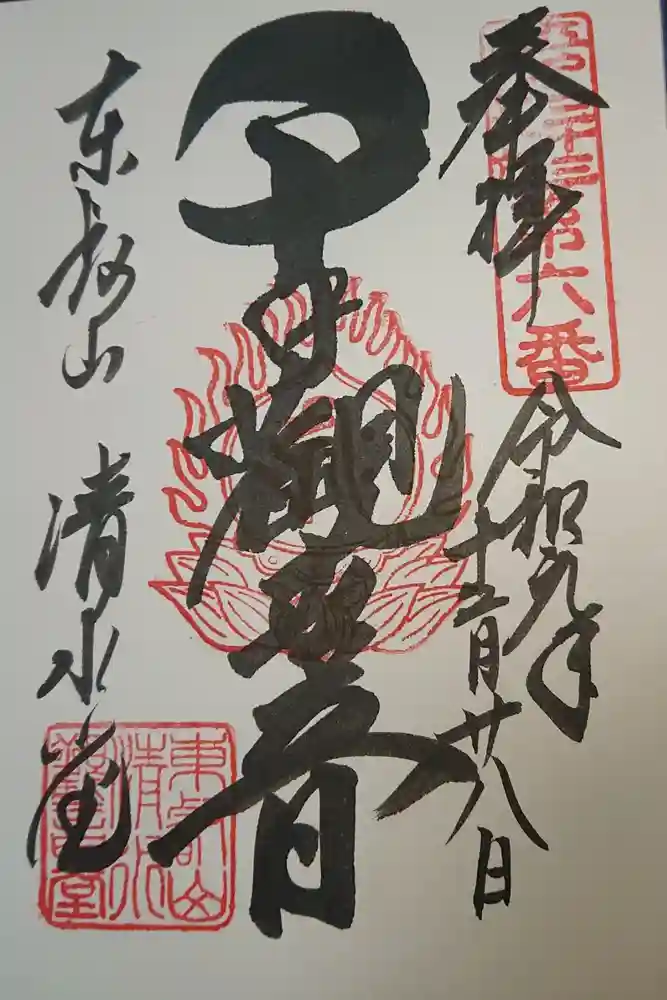 奉拝
江戸三十三第六番
令和元年
十二月廿八日
千手觀世音
東叡山 清水堂
東叡山
清水
觀音堂